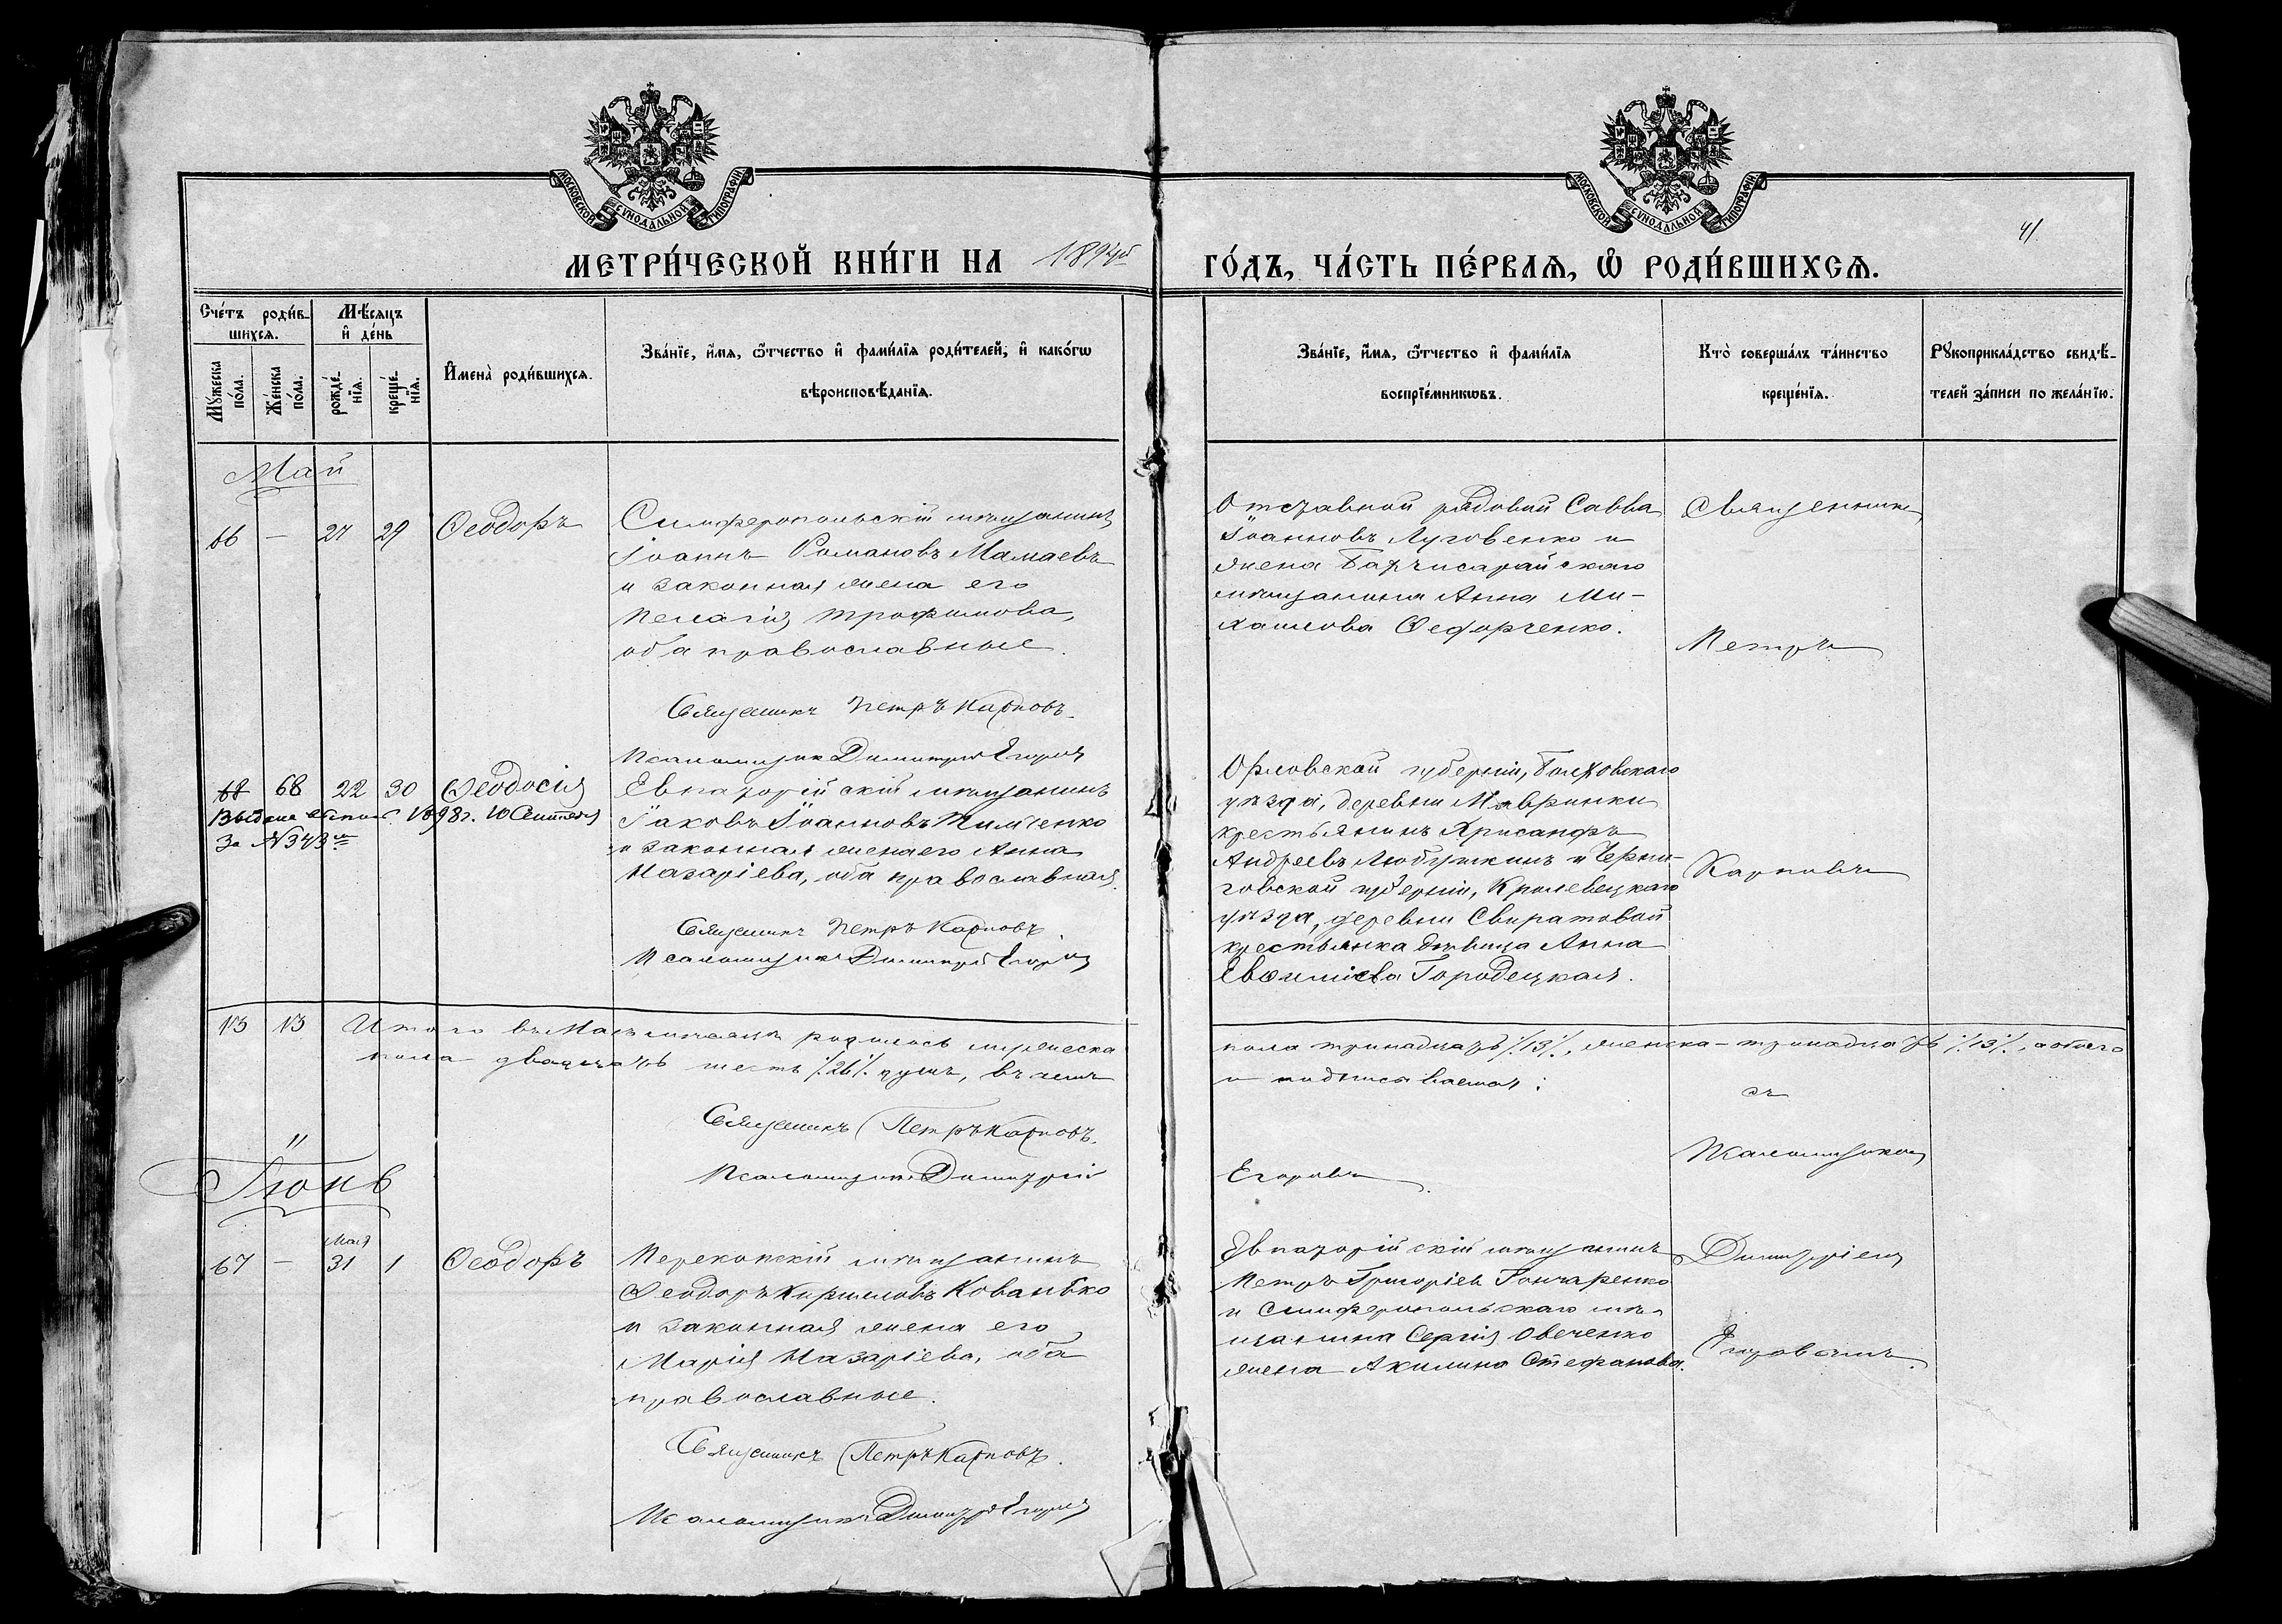 МОСКОВСКОЙ СѴНОДАЛЬНОЙ ТИПОГРАФІИ
МОСКОВСКОЙ СѴНОДАЛЬНОЙ ТИПОГРАФІИ
41.
МЕТРИ́ЧЕСКОЙ КНИ́ГИ НА 1894й ГО́ДЪ, ЧА́СТЬ ПЕ́РВАѦ, Ѡ РОДИ́ВШИХСѦ.
Сче́тъ роди́в-
шихсѧ.
Мѣ́сѧцъ
и҆ де́нь
Мꙋ́жеска по́ла.
Же́нска по́ла.
рожде́-нїѧ.
креще́-нїѧ.
И҆мена̀ роди́вшихсѧ.
Зва́нїе, и҆́мѧ, ѻ҆́тчество и҆ фами́лїѧ роди́телей, и҆ како́гѡ
вѣроисповѣ́данїѧ.
Зва́нїе, и҆́мѧ, ѻ҆́тчество и҆ фами́лїѧ
воспрїе́мникѡвъ.
Кто̀ соверша́лъ та́инство
креще́нїѧ.
Рꙋкоприкла́дство свидѣ́-
телей за́писи по жела́нїю.
Май
66 — 27 29 Ѳеодоръ
Симферопольскій мѣщанинъ
Іоаннъ Романовъ Мамаевъ
и законная жена его
Пелагія Трофимова,
оба православные.
Священникъ Петръ Карповъ.
Псаломщикъ Димитрій Егоровъ
Отставной рядовой Савва
Іоанновъ Луговенко и
жена Бахчисарайскаго
мѣщанина Анна Ми-
хаилова Федорченко.
Священникъ
Петръ
68 68 22 30 Ѳеодосія
Выдана 1898г. 10 Сентября
За №343
Евпаторійскій мѣщанинъ
Іаковъ Іоанновъ
и законная жена его Анна
Назаріева, оба православная.
Священникъ Петръ Карповъ.
Псаломщикъ Димитрій Егоровъ
Орловской губерніи, Болховскаго
уѣзда, деревни
крестьянинъ Хрисанфъ
Андреевъ Любушкинъ и Черни-
говской губерніи, Кролевецкаго
уѣзда, деревни
крестьянка дѣвица Анна
Евѳиміева Городецкая.
Карповъ
13 13 Итого въ Маѣ мѣсяцѣ родилось мужеска пола тринадцать /.13/., женска - тринадцать /.13/., а обоего
пола двадцать шесть /.26/. душъ, въ чемъ и подписываемся:
съ
Священникъ Петръ Карповъ.
Псаломщикъ Димитрій Егоровъ.
Псаломщикомъ
Іюнь
Мая
67 — 31 1 Ѳеодоръ
Перекопскій мѣщанинъ
Ѳеодоръ Кириловъ Кованько
и законная жена его
Марія Назаріева, оба
православные.
Священникъ Петръ Карповъ.
Псаломщикъ Димитрій Егоровъ
Евпаторійскій мѣщанинъ
Петръ Григоріевъ Гончаренко
и Симферопольскаго мѣ-
щанина Сергія Овеченко
жена Акилина Стефанова.
Димитріемъ
Егоровымъ.